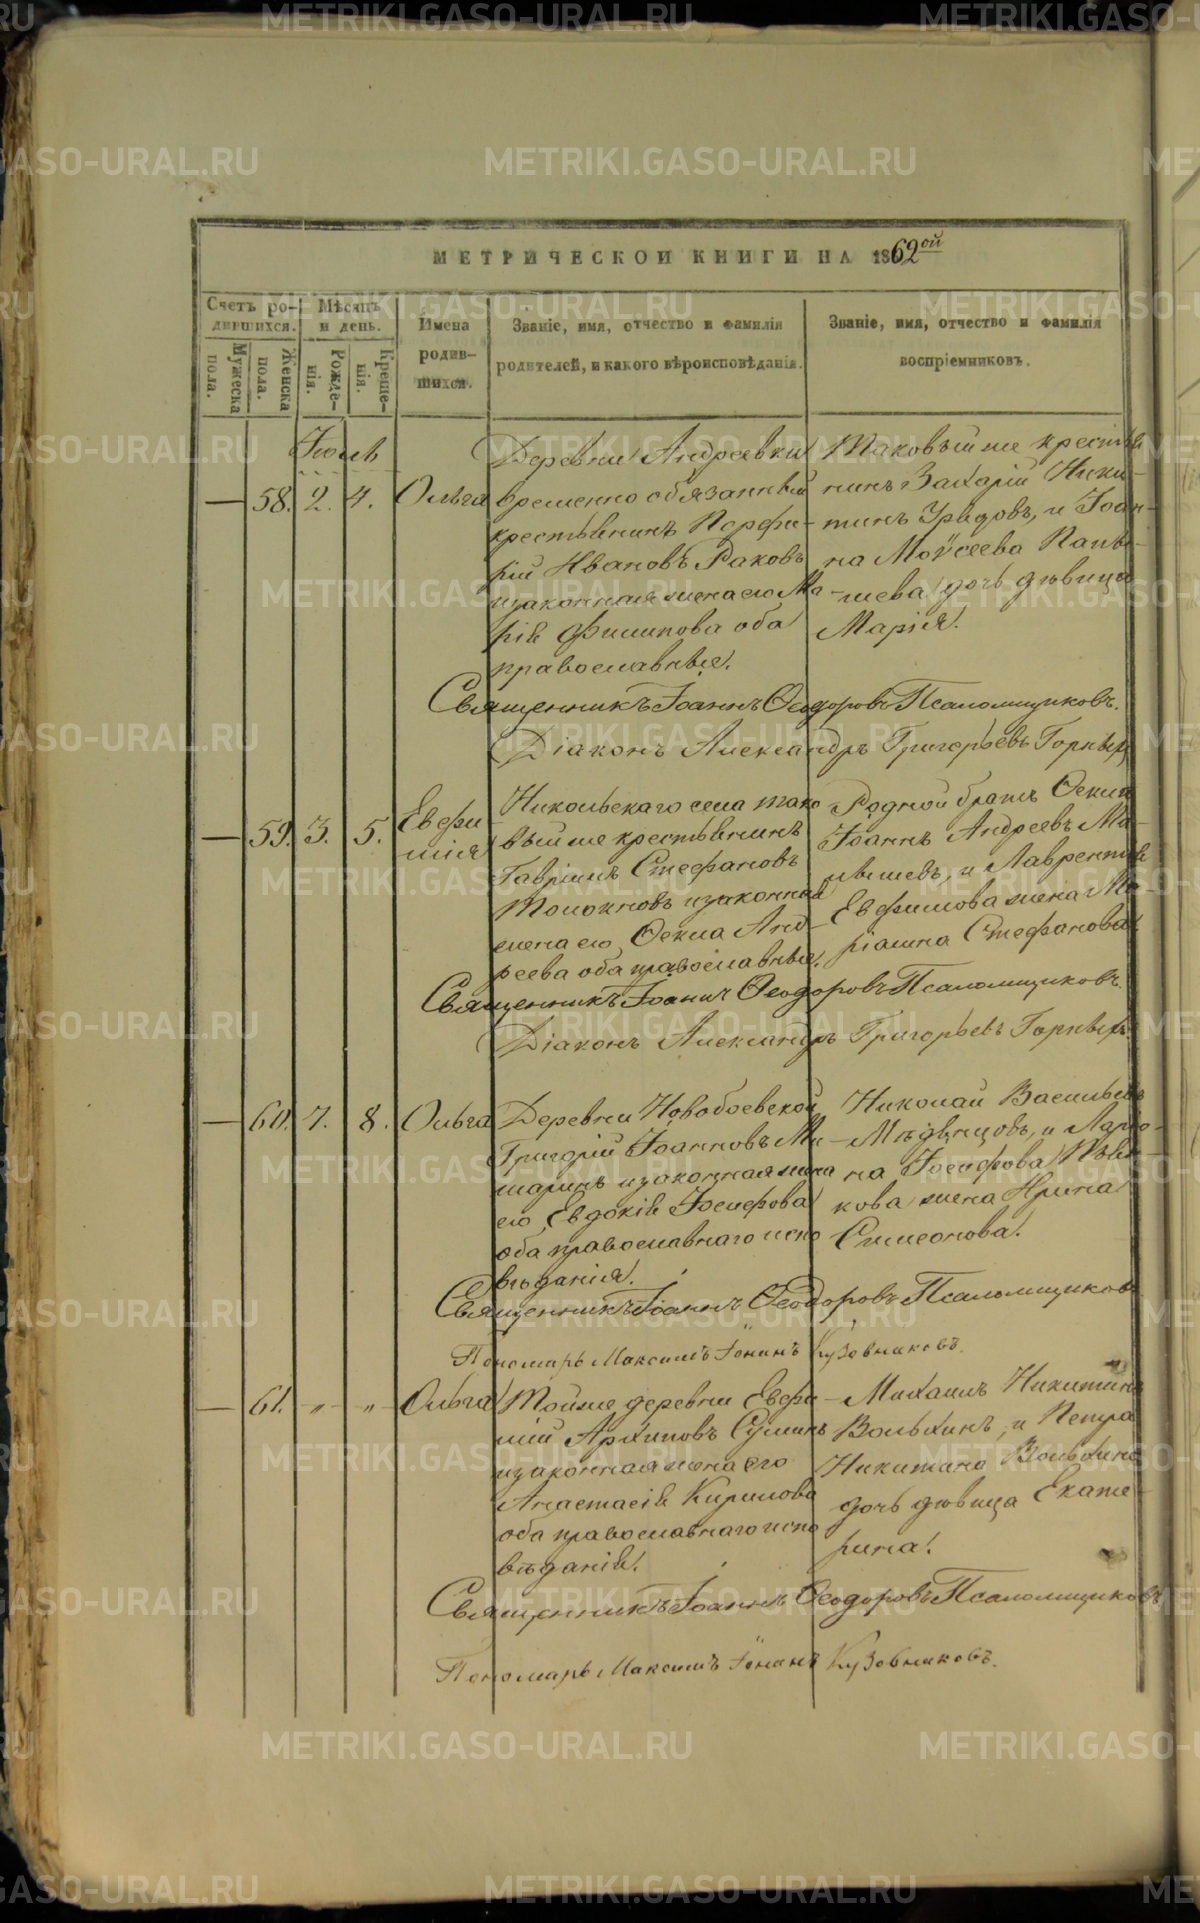 МЕТРИЧЕСКОЙ КНИГИ НА 1862ой
Счетъ ро-
дившихся.
Мужеска
пола.
Женска
пола.
Мѣсяцъ
и день.
Рожде-
нія.
Креще-
нія.
Имена
родив-
шихся.
Званіе, имя, отчество и фамилія
родителей, и какого вѣроисповѣданія.
Званіе, имя, отчество и фамилія
воспріемниковъ.
Іюль
— 58. 2. 4. Ольга
Деревни Андреевки
временно обязанный
крестьянинъ Перфи-
рій Ивановъ Раковъ
изаконная жена его Ма-
рія Филипова оба
православные.
Таковый же крестья
нинъ Захарій Ники-
тинъ и Іоан-
на Моѵсеева
дочь дѣвица
Марія.
Священникъ Іоаннъ Ѳеодоровъ Псаломщиковъ.
Діаконъ Александръ Григорьевъ Горныхъ
— 59. 3. 5. Евфи-
мія
Никольскаго села тако
вый же крестьянинъ
Гавріилъ Стефановъ
Толокновъ изаконная
жена его Ѳекла Анд-
реева оба православные.
Родной братъ Ѳеклы
Іоаннъ Андреевъ Ма-
лышевъ, и Лаврентія
Евфимова жена Ма-
ріамна Стефанова.
Священникъ Іоаннъ Ѳеодоровъ Псаломщиковъ.
Діаконъ Александръ Григорьевъ Горныхъ
— 60. 7. 8. Ольга
Деревни Новобоевской
Григорій Іоанновъ Ми-
шаринъ изаконная жена
его Евдокія Іосифова
оба православнаго испо
вѣданія.
Николай Васильевъ
Мѣдвнцовъ, и Ларіо-
на Іосифова
кова жена Ирина
Симеонова.
Священникъ Іоаннъ Ѳеодоровъ Псаломщиковъ
Пономарь Максимъ Іонинъ Кузовниковъ.
— 61. „ „ Ольга
Тойже деревни Евфи-
мій Архиповъ Суминъ
изаконная жена его
Анастасія Кирилова
оба православнаго испо
вѣданія.
Михаилъ Никитинъ
Вольхинъ, и Петра
Никитина Вольхина
дочь дѣвица Екате-
рина.
Священникъ Іоаннъ Ѳеодоровъ Псаломщиковъ
Пономарь Максимъ Іонинъ Кузовниковъ.
METRIKI.GASO-URAL.RU